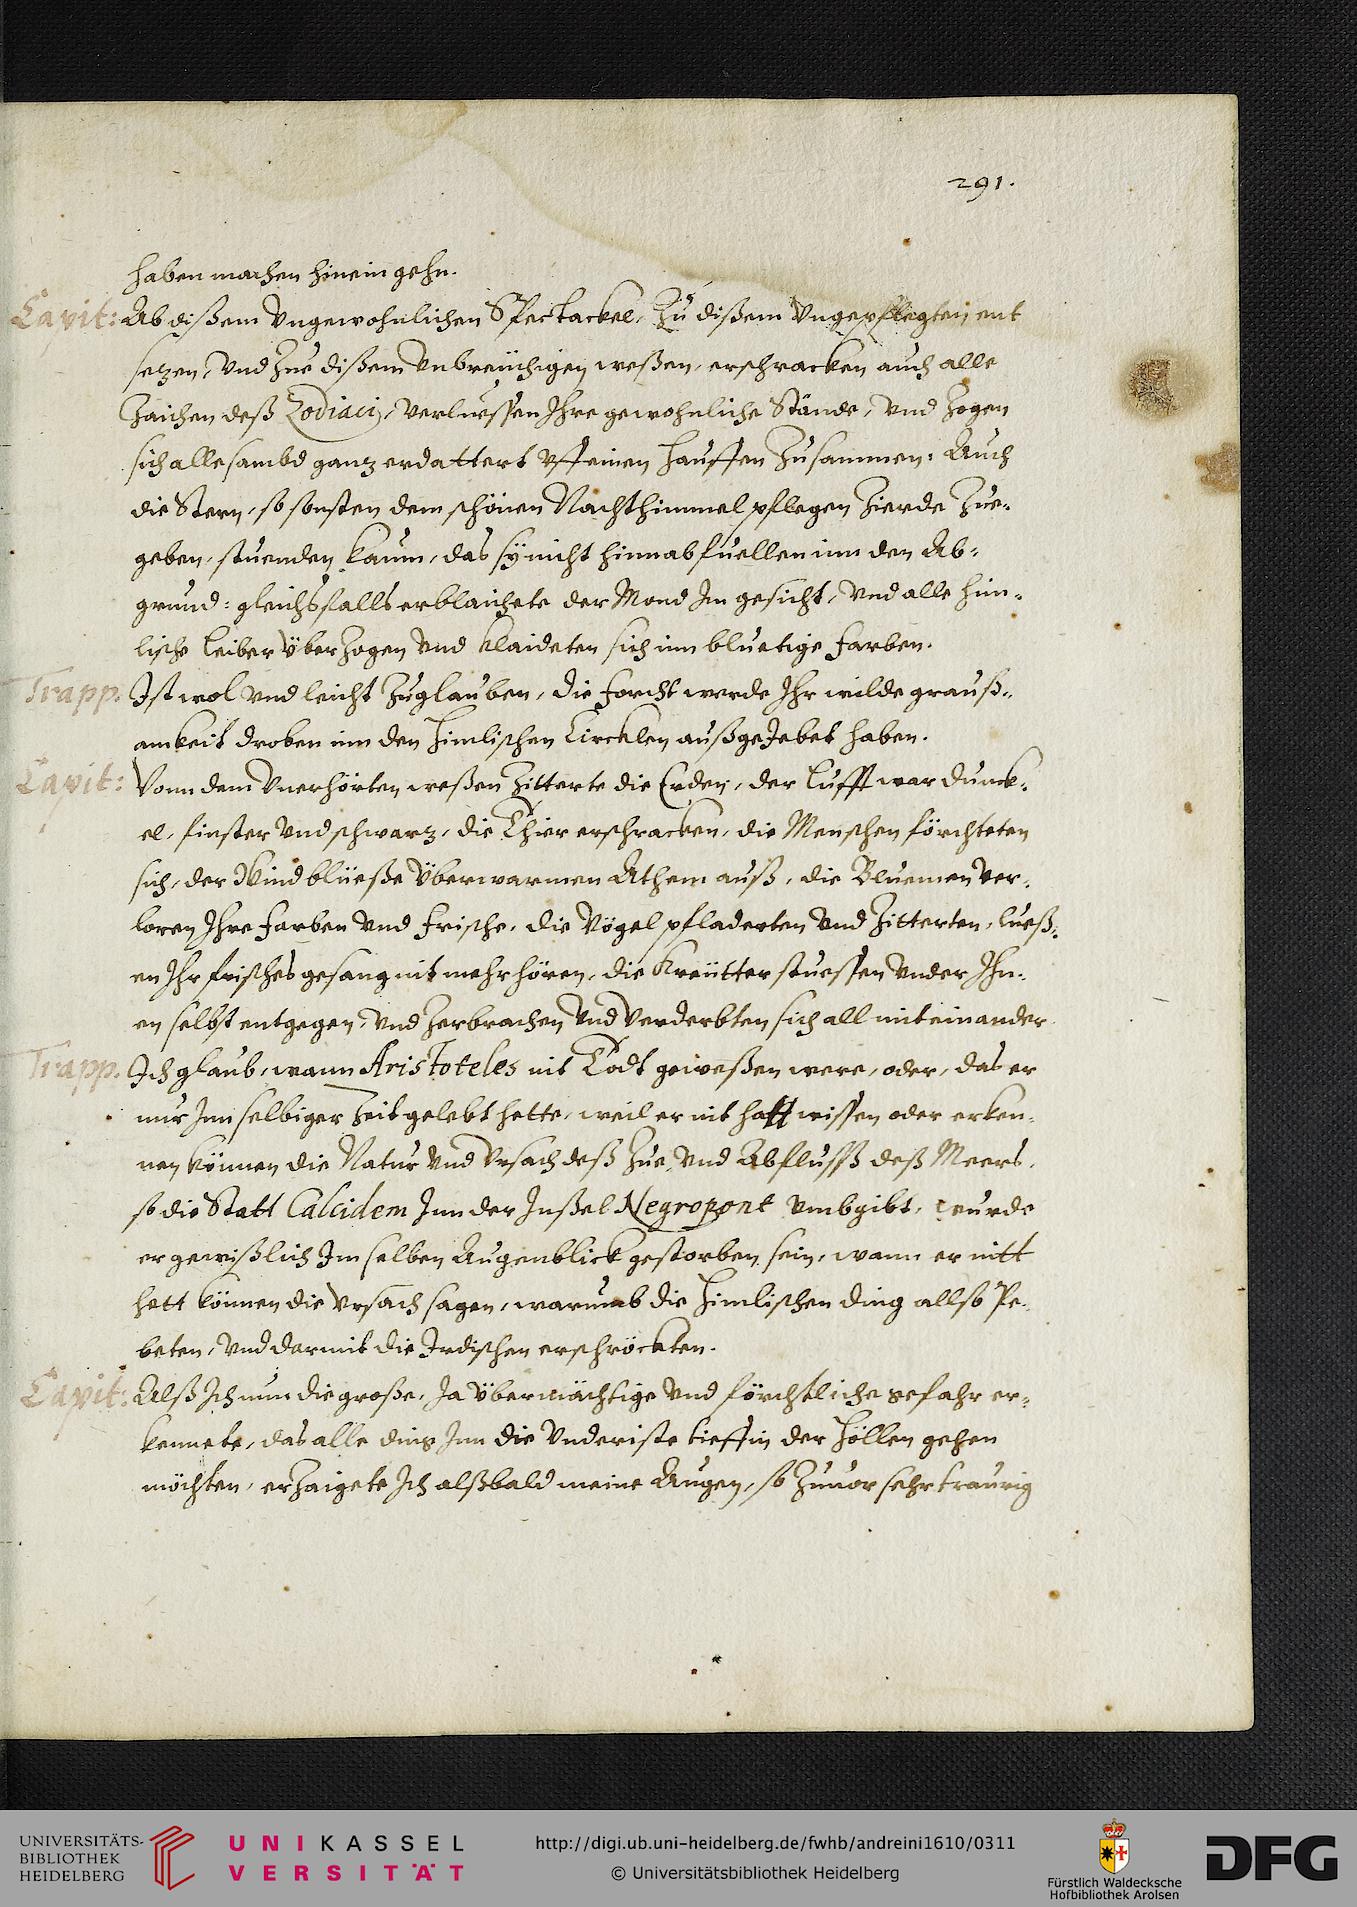 291.
haben machen hinein gehn.
Capit: Ab dißem Ungewohnlichen Spectackel, Zu dißem Ungepflegten ent
setzen, Und Zue dißem Unbreüchigen weßen, erschracken auch alle
Zaichen deß Zodiaci, verluessen Ihre gewohnliche Stände, Und Zogen
sich allesambd ganz erdattert Uff einen hauffen Zusammen: Auch
die Stern, so sonsten dem schönen Nachthimmel pflegen Zierde Zue-
geben, stuenden kaum, das sy nicht hinnab fuellen inn den Ab-
grund: gleichsfalls erblaichete der Mond Im gesicht, Und alle him-
lische Leiber überzogen Und klaideten sich inn bluetige Farben.
Trapp. Ist wol Und leicht Zuglauben, die Forcht werde Ihr wilde grauß-
amkeit droben inn den Himlischen Circklen außgeiebet haben.
Capit: Vonn dem Unerhörten weßen Zitterte die Erden, der Lufft war dunck-
el, finster Und schwarz, die Thier erschracken, die Menschen förchteten
sich, der Wind blüeße Überwarmen Athem auß, die Bluemen ver-
loren Ihre Farben Und Frische, die Vögel pfladerten Und Zitterten, lueß-
en Ihr frisches gesang nit mehr hören, die Kreütter stuessen Under Ihn-
en selbst entgegen, Und Zerbrachen Und Verderbten sich all miteinander
Trapp. Ich glaub, wann Aristoteles nit Todt geweßen were, oder, das er
nur Inn selbiger Zeit gelebt hette, weil er nit hatt wissen oder erken-
nen können die Natur Und Ursach deß Zue, Und Abfluß deß Meers,
so die Statt Calcidem Inn der Inßel Negropont Umbgibt, wurde
er gewißlich Im selben Augenblick gestorben sein, wann er nitt
hett können die Ursach sagen, warumb die Himlischen ding allso Pe-
beten, Und darmit die Irdischen erschröckten.
Capit: Alß Ich nun die große, Ja Übermächtige Und förchtliche gefahr er-
kennete, das alle ding Inn die Underiste tieffin der Höllen gehen
möchten, erzaigete Ich alßbald meine Augen, so Zuuor sehr traurig
UNIVERSITÄTS-
BIBLIOTHEK
HEIDELBERG
UNIKASSEL
VERSITÄT
http://digi.ub.uni-heidelberg.de/fwhb/andreini1610/0311
© Universitätsbibliothek Heidelberg
Fürstlich Waldecksche
Hofbibliothek Arolsen
DFG